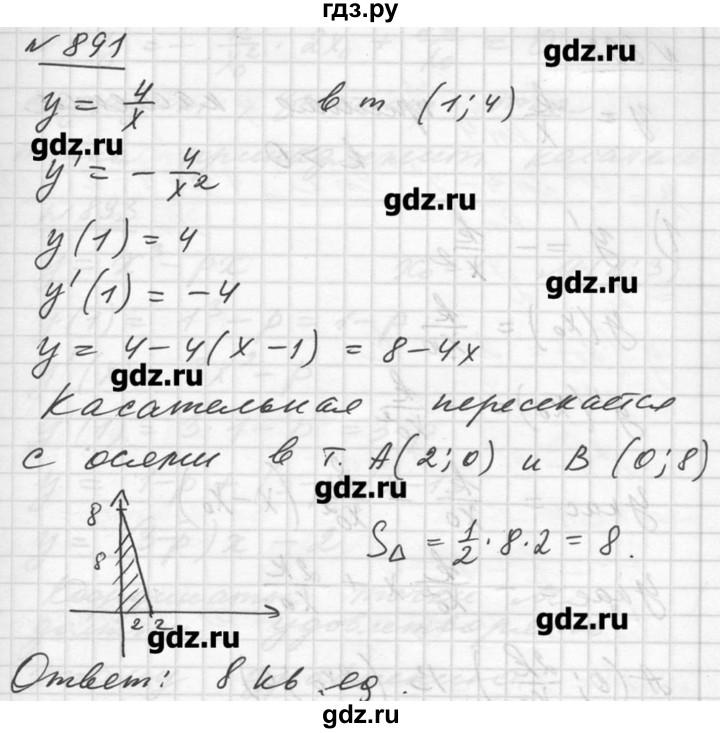 гдз.ру
№ 891
gdz.ru
y = 4/x в т (1; 4)
gdz.ru
y' = - 4/x²
gdz.ru
y(1) = 4
y'(1) = -4
gdz.ru
y = 4-4(x-1) = 8-4x
gdz.ru
Касательная пересекается
с осями в т. A(2; 0) и B (0; 8)
gdz.ru
8
8
S△ = 1/2 · 8 · 2 = 8.
2 2
gdz.ru
gdz.ru
Ответ: 8 кв. ед.
gdz.ru